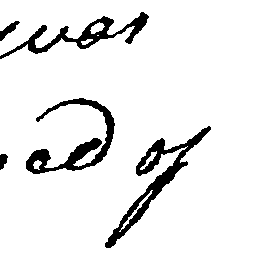 was
ed of